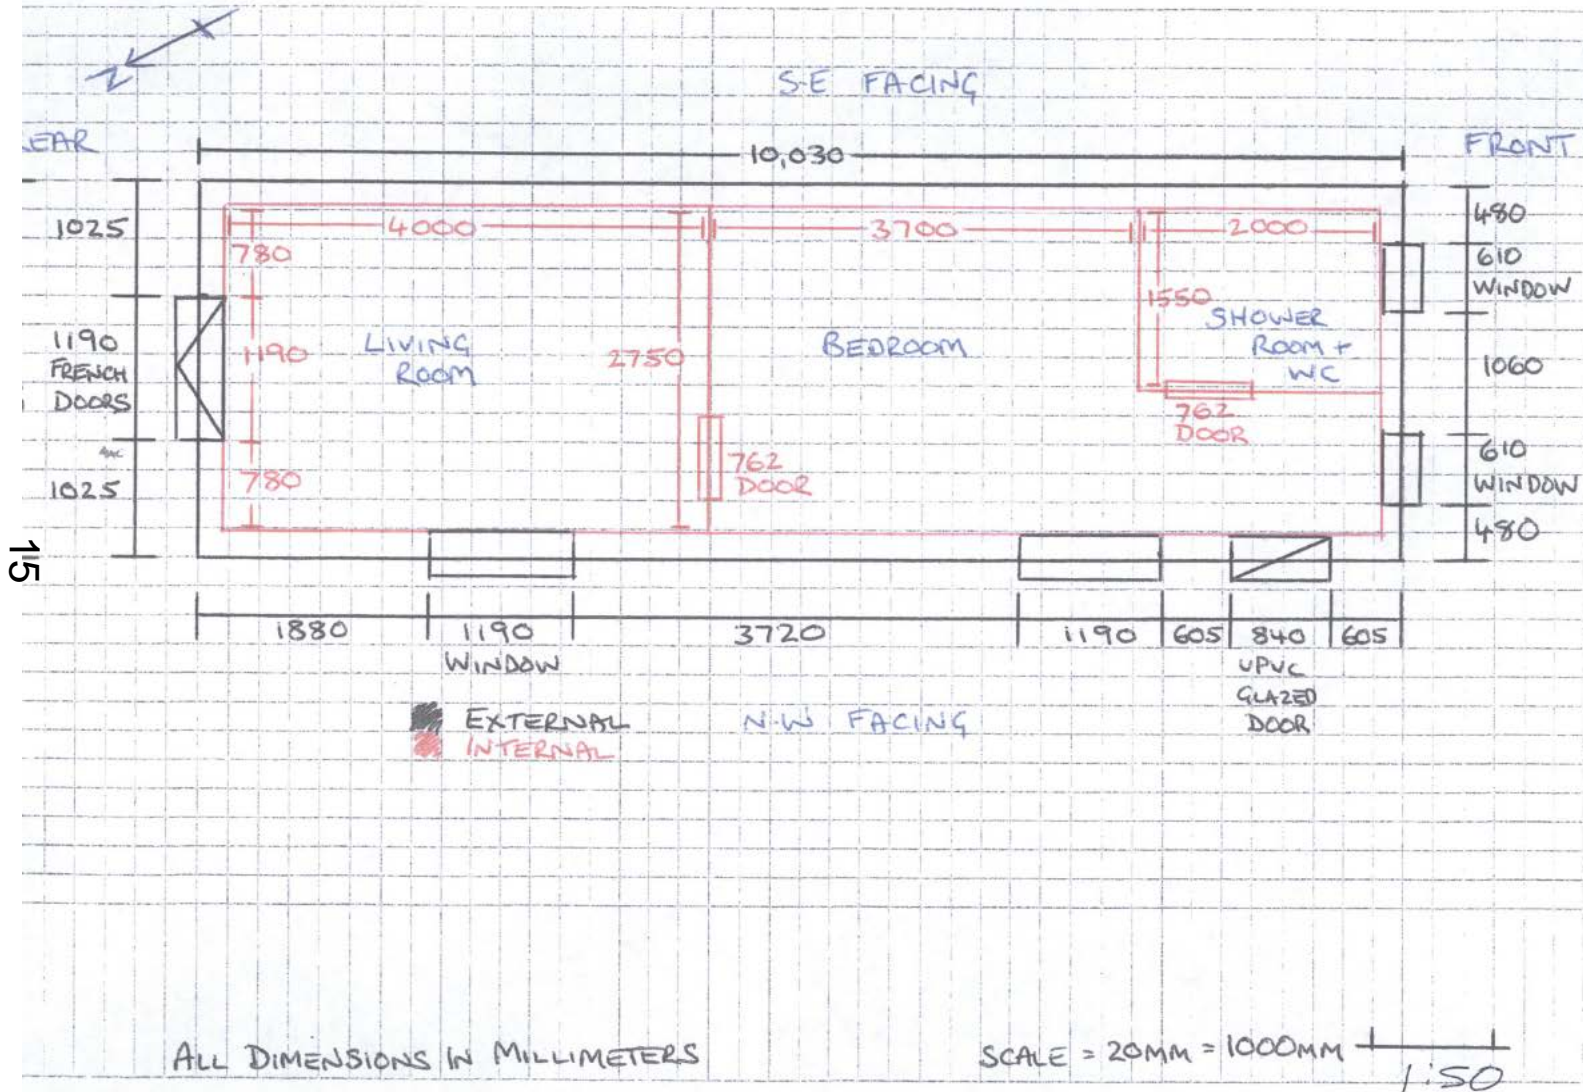 N
S-E FACING
EAR
10,030
FRONT
1025
1190
FRENCH
DOORS
1025
4000
3700
2000
780
1190
780
LIVING
ROOM
2750
BEDROOM
1550
SHOWER
ROOM +
WC
762
DOOR
762
DOOR
480
610
WINDOW
1060
610
WINDOW
480
15
1880
1190
3720
1190
605
840
605
WINDOW
UPVC
GLAZED
DOOR
EXTERNAL
INTERNAL
N.W FACING
ALL DIMENSIONS IN MILLIMETERS
SCALE = 20MM = 1000MM
1:50